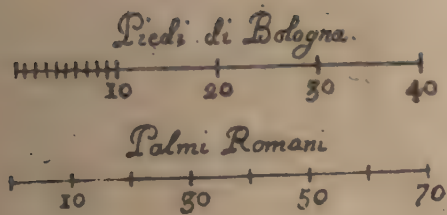 Piedi di Bologna.
10 20 30 40
Palmi Romani
10 30 50 70